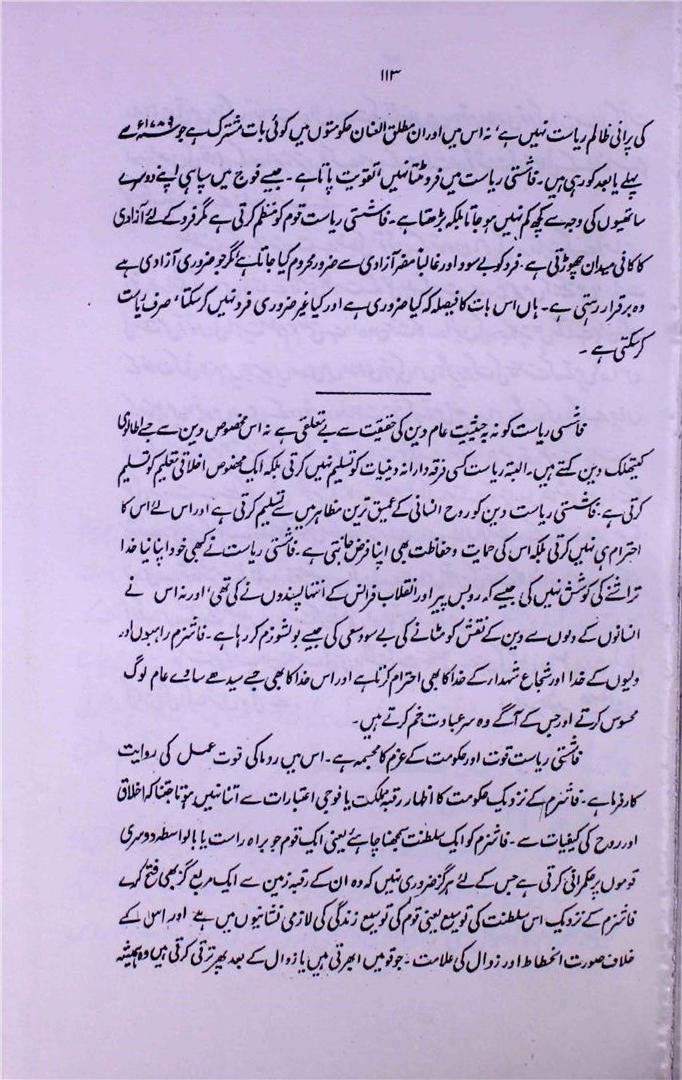 ۱۱۳
کی پرانی ظالم ریاست نہیں ہے، نہ اس میں اور ان مطلق العنان حکومتوں میں کوئی بات مشترک ہے جو ۱۷۸۹ء سے
پہلے یا بعد کو رہی ہیں۔ فاشستی ریاست میں فرد مٹتا نہیں، تقویت پاتا ہے۔ جیسے فوج میں سپاہی اپنے دوسرے
ساتھیوں کی وجہ سے کچھ کم نہیں ہو جاتا بلکہ بڑھتا ہے۔ فاشستی ریاست قوم کو منظم کرتی ہے مگر فرد کے لئے آزادی
کا کافی میدان چھوڑتی ہے۔ فرد کو بے سود اور غالباً مضر آزادی سے ضرور محروم کیا جاتا ہے مگر جو ضروری آزادی ہے
وہ برقرار رہتی ہے۔ ہاں اس بات کا فیصلہ کہ کیا ضروری ہے اور کیا غیر ضروری فرد نہیں کر سکتا، صرف ریاست
کر سکتی ہے۔
فاشستی ریاست کو نہ بہ حیثیت عام دین کی حقیقت سے بے تعلقی ہے نہ اس مخصوص دین سے جسے اطالوی
کیتھلک دین کہتے ہیں۔ البتہ ریاست کسی فرقہ دارانہ دینیات کو تسلیم نہیں کرتی بلکہ ایک مخصوص اخلاقی تعلیم کو تسلیم
کرتی ہے۔ فاشستی ریاست دین کو روح انسانی کے عمیق ترین مظاہر میں سے تسلیم کرتی ہے اور اس لئے اس کا
احترام ہی نہیں کرتی بلکہ اس کی حمایت و حفاظت بھی اپنا فرض جانتی ہے۔ فاشستی ریاست نے کبھی خود اپنا نیا خدا
تراشنے کی کوشش نہیں کی جیسے کہ روبس پیر اور انقلاب فرانس کے انتہا پسندوں نے کی تھی، اور نہ اس نے
انسانوں کے دلوں سے دین کے نقش کو مٹانے کی بے سود سعی کی جیسے بولشوزم کر رہا ہے۔ فاشزم راہبوں اور
ولیوں کے خدا اور شجاع شہداء کے خدا کا بھی احترام کرتا ہے اور اس خدا کا بھی جسے سیدھے سادے عام لوگ
محسوس کرتے اور جس کے آگے وہ سر عبادت خم کرتے ہیں۔
فاشستی ریاست قوت اور حکومت کے عزم کا مجسمہ ہے۔ اس میں روما کی قوت عمل کی روایت
کارفرما ہے۔ فاشزم کے نزدیک حکومت کا اظہار رقبہ مملکت یا فوجی اعتبارات سے اتنا نہیں ہوتا جتنا کہ اخلاق
اور روح کی کیفیات سے۔ فاشزم کو ایک سلطنت سمجھنا چاہئے یعنی ایک قوم جو براہ راست یا بالواسطہ دوسری
قوموں پر حکمرانی کرتی ہے جس کے لئے ہرگز ضروری نہیں کہ وہ ان کے رقبہ زمین سے ایک مربع گز بھی فتح کرے
فاشزم کے نزدیک اس سلطنت کی توسیع یعنی قوم کی توسیع زندگی کی لازمی نشانیوں میں ہے اور اس کے
خلاف صورت انحطاط اور زوال کی علامت۔ جو قومیں ابھرتی ہیں یا زوال کے بعد پھر ترقی کرتی ہیں وہ ہمیشہ